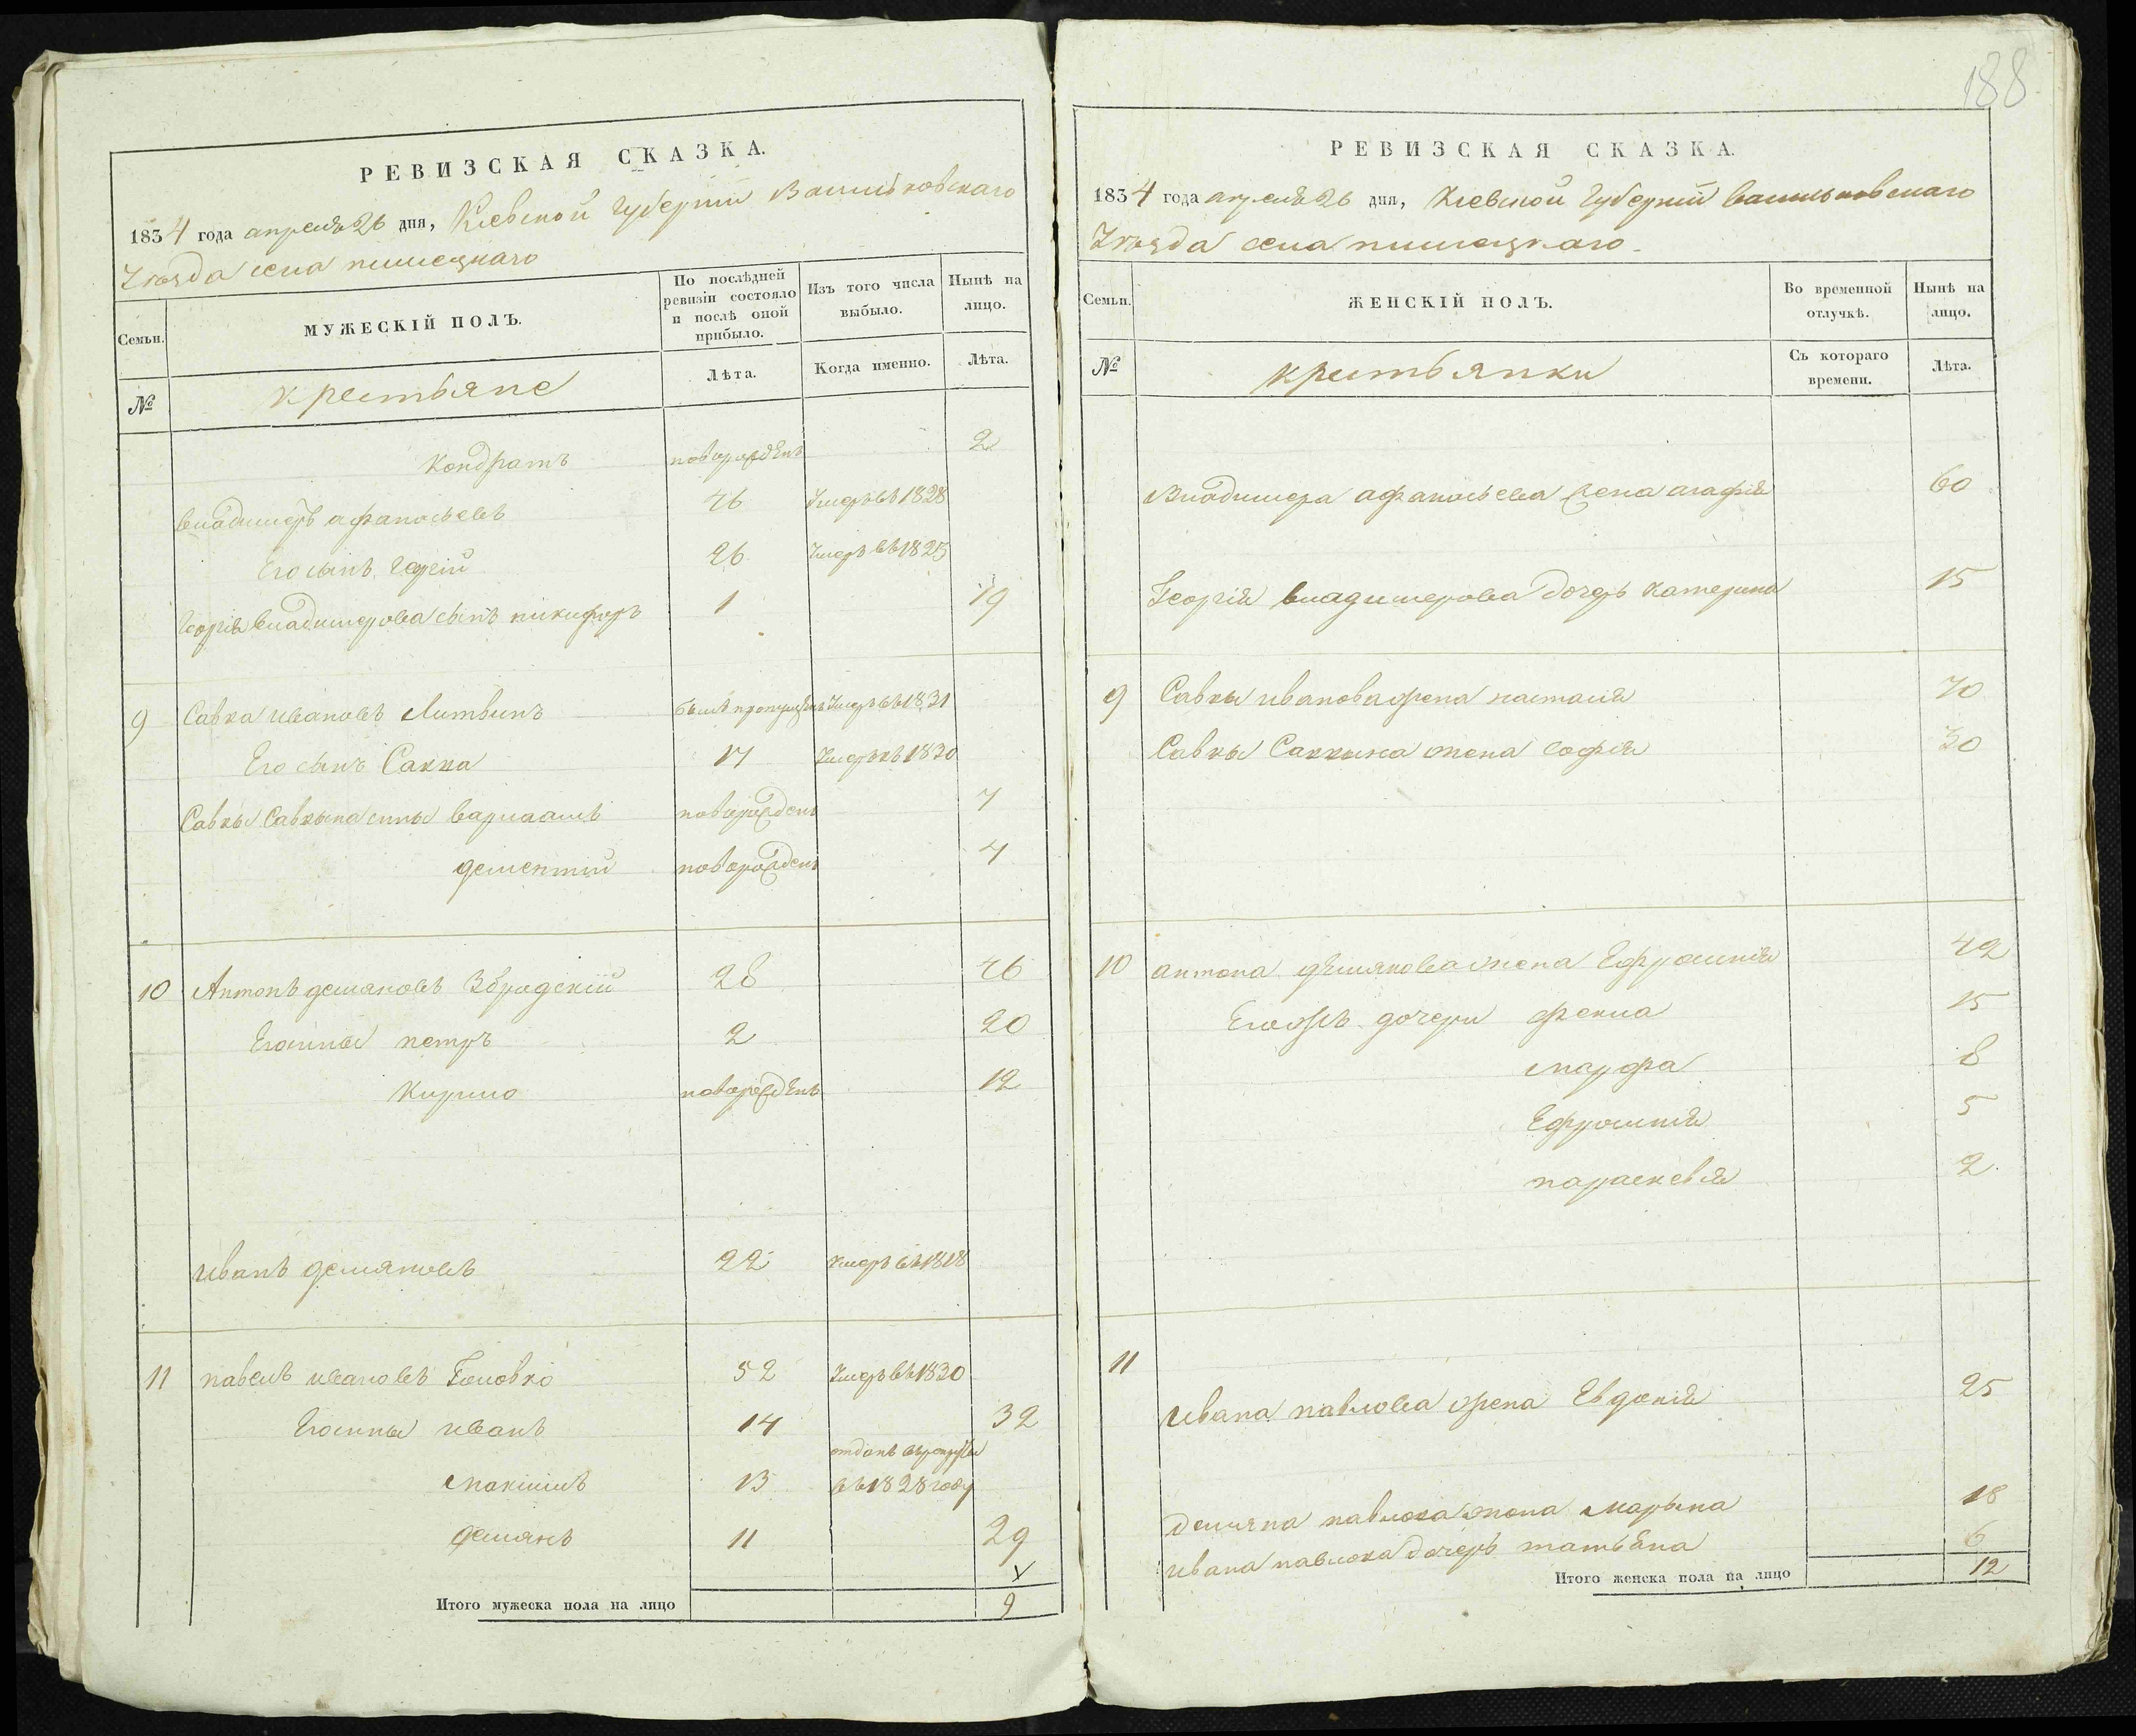 188
РЕВИЗСКАЯ СКАЗКА.
1834 года апреля 26 дня, Киевской Губернии Васильковскаго
Уѣзда села
Семьи.
МУЖЕСКІЙ ПОЛЪ.
По послѣдней ревизіи состояло и послѣ оной прибыло.
Изъ того числа выбыло.
Нынѣ на лицо.
№
крестьяне
Лѣта.
Когда именно.
Лѣта.
Кондратъ новорожденъ 2
владимеръ афанасьевъ 46 Умеръ въ 1828
Его сынъ Георгій 26 Умеръ въ 1825
Георгія владимерова сынъ никифоръ 1 19
9 Савка ивановъ Литвинъ былъ пропущенъ Умеръ въ 1831
Его сынъ Савка 17 Умеръ въ 1830
Савки Савкина сыны варлаамъ новорожденъ 7
дементий новорожденъ 4
10 Антонъ демяновъ Збродскій 28 46
Его сыны петръ 2 20
Кирило новорожденъ 12
иванъ демяновъ 22 Умеръ въ 1818
11 павелъ ивановъ Головко 52 Умеръ въ 1830
Его сыны иванъ 14 32
отданъ въ рекруты
Максимъ 13 въ 1828 году
демянъ 11 29
Итого мужеска пола на лицо 9
РЕВИЗСКАЯ СКАЗКА.
1834 года апреля 26 дня, Киевской Губерній васильковскаго
Уѣзда села
Семьи.
ЖЕНСКІЙ ПОЛЪ.
Во временной отлучкѣ.
Нынѣ на лицо.
№
крестьянки
Съ котораго времени.
Лѣта.
Владимера афанасьева жена агафія 60
Георгія владимерова дочерь катерина 15
9 Савки иванова жена наталія 70
Савки Савкина жена софія 30
10 антона демянова жена Ефросинія 42
Его дочери фекла 15
марфа 8
Ефросинія 5
параскевія 2
11
ивана павлова жена Евдокія 25
Демяна павлова жена марьяна 18
ивана павлова дочерь татьяна 6
Итого женска пола на лицо 12